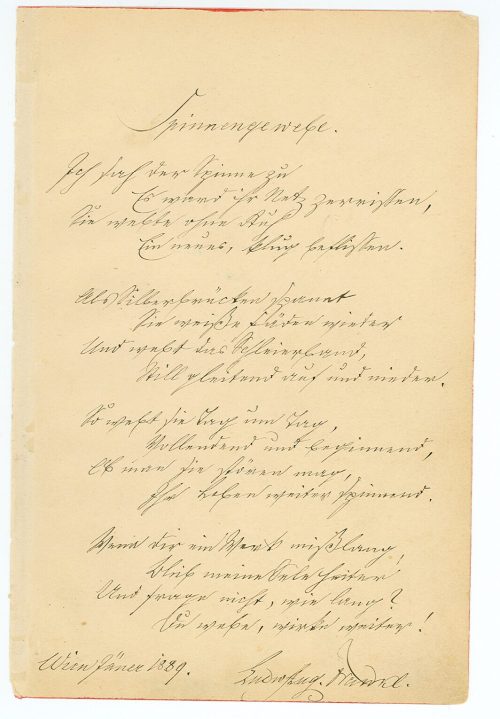 Spinnengewebe.
Ich sah der Spinne zu
Es ward ihr Netz zerrissen,
Sie webte ohne Ruh
Ein neues, klug beflissen.
Als Silberbrücken spannt
Sie weiße Fäden wieder
Und webt das Schleierband,
Still gleitend auf und nieder.
So webt sie Tag um Tag,
Vollendend und beginnend,
Ob man sie stören mag,
Ihr Leben weiter spinnend.
Wenn dir ein Werk mißlang,
Bleib meine Sele heiter
Und frage nicht, wie lang?
Du webe, wirke weiter!
Wien Jäner 1889.
Ludw. Aug. Frankl.